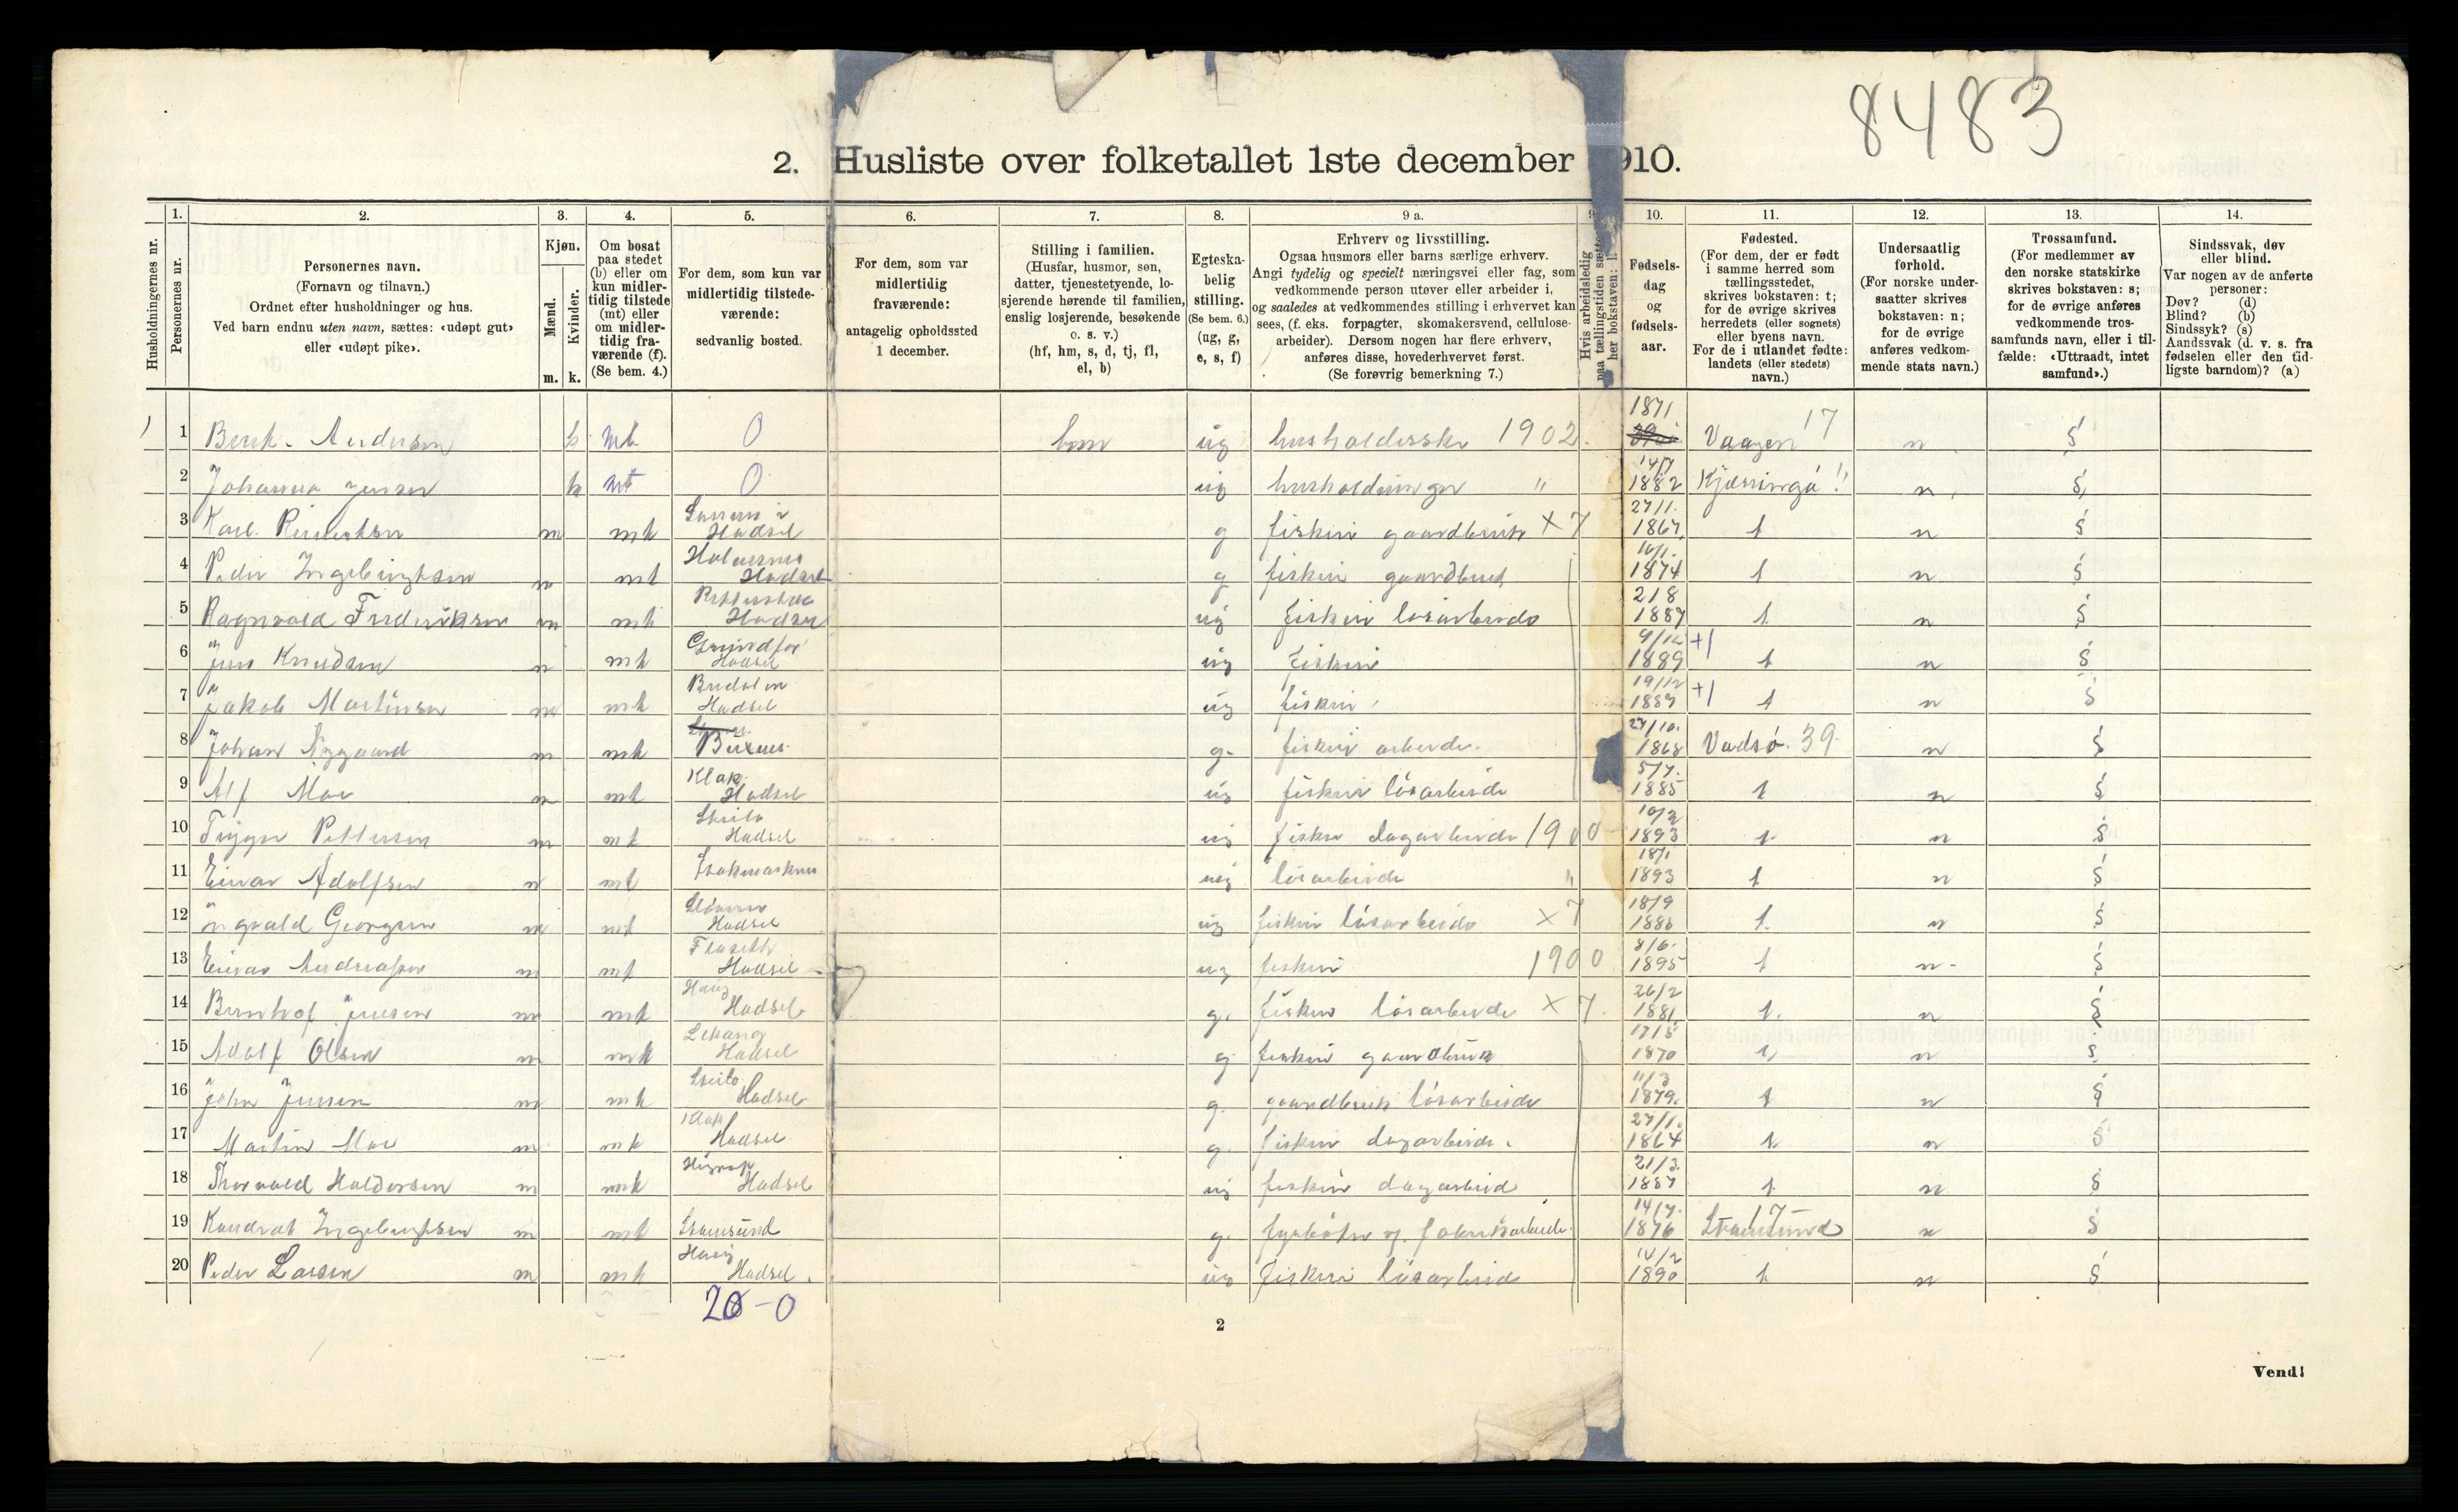 8483
2. Husliste over folketallet 1ste december 1910.
Husholdningernes nr.
1. Personernes nr.
2. Personernes navn.
(Fornavn og tilnavn.)
Ordnet efter husholdninger og hus.
Ved barn endnu uten navn, sættes: «udøpt gut»
eller «udøpt pike».
3. Kjøn.
Mænd. m.
Kvinder. k.
4. Om bosat
paa stedet
(b) eller om
kun midler-
tidig tilstede
(mt) eller
om midler-
tidig fra-
værende (f).
(Se bem. 4.)
5. For dem, som kun var
midlertidig tilstede-
værende:
sedvanlig bosted.
6. For dem, som var
midlertidig
fraværende:
antagelig opholdssted
1 december.
7. Stilling i familien.
(Husfar, husmor, søn,
datter, tjenestetyende, lo-
sjerende hørende til familien,
enslig losjerende, besøkende
o. s. v.)
(hf, hm, s, d, tj, fl,
el, b)
8. Egteska-
belig
stilling.
(Se bem. 6.)
(ug, g,
e, s, f)
9 a. Erhverv og livsstilling.
Ogsaa husmors eller barns særlige erhverv.
Angi tydelig og specielt næringsvei eller fag, som
vedkommende person utøver eller arbeider i,
og saaledes at vedkommendes stilling i erhvervet kan
sees, (f. eks. forpagter, skomakersvend, cellulose-
arbeider). Dersom nogen har flere erhverv,
anføres disse, hovederhvervet først.
(Se forøvrig bemerkning 7.)
9
Hvis arbeidsledig
paa tællingstiden sættes
her bokstaven: l.
10. Fødsels-
dag
og
fødsels-
aar.
11. Fødested.
(For dem, der er født
i samme herred som
tællingsstedet,
skrives bokstaven: t;
for de øvrige skrives
herredets (eller sognets)
eller byens navn.
For de i utlandet fødte:
landets (eller stedets)
navn.)
12. Undersaatlig
forhold.
(For norske under-
saatter skrives
bokstaven: n;
for de øvrige
anføres vedkom-
mende stats navn.)
13. Trossamfund.
(For medlemmer av
den norske statskirke
skrives bokstaven: s;
for de øvrige anføres
vedkommende tros-
samfunds navn, eller i til-
fælde: «Uttraadt, intet
samfund».)
14. Sindssvak, døv
eller blind.
Var nogen av de anførte
personer:
Døv? (d)
Blind? (b)
Sindssyk? (s)
Aandssvak (d. v. s. fra
fødselen eller den tid-
ligste barndom)? (a)
1 Andersen k mt 0 ug husholderske 1902. 1871 Vaagen 17 n s
2 Johanna Jensen k mt 0 ug husholdninger " 14/7 1882 n s
3 Karl m mt Hadsel g fiskeri gaardbruk × 7 27/1. 1867 t n s
4 Peder Ingebrigtsen m mt Hadsel g fiskeri gaardbruk 1874 t n s
5 Ragnvald Fredriksen m mt Hadsel ug fiskeri løsarbeide 1887 t n s
6 Jens Knudsen m mt Hadsel ug fiskeri 9/12 1889 +1 t n s
7 Jakob Martinsen m mt Hadsel ug fiskeri 19/12 1889 +1 t n s
8 Johan Nygaard m mt g. fiskeri arbeide. 1868 Vadsø. 39 n s
9 Alf Moe m mt Klak. Hadsel ug fiskeri løsarbeide 5/7. 1885 t n s
10 Trygve Pettersen m mt Hadsel ug fiskeri dagarbeide 1900 10/2 1893 t n s
11 Einar Adolfsen m mt Stokmarknes ug løsarbeide " 18/1 1893 t n s
12 Ingvald Georgsen m mt Hadsel ug fiskeri løsarbeide × 7 18/9 t. n s
13 Einar Andreassen m mt Hadsel ug fiskeri 1900 1895 t n s
14 Bernhof Jensen m mt Haug Hadsel g. fiskeri løsarbeide × 7. 26/2 1881 t. n s
15 Adolf Olsen m mt Lekang Hadsel g fiskeri gaardbruk 17/5 1870 t n s
16 John Jensen m mt Hadsel g. gaardbruk løsarbeide 11/3 1879. t n s
17 Martin Moe m mt Klak Hadsel g. fiskeri dagarbeide. 27/1. 1864 t n s
18 Thorvald Haldorsen m mt Hadsel ug fiskeri dagarbeid 21/3. 1887 t n s
19 Kondrat Ingebrigtsen m mt Stamsund g. fyrbøter og fabrikarbeide 14/7. 1876 Stamsund 17 n s
20 Peder Larsen m mt Haug Hadsel ug fiskeri løsarbeide 1890 t n s
20-0
2
Vend!